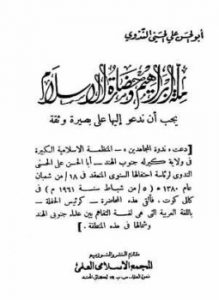 أبو الحسن علي الحسني الندوي
ملة إبراهيم وحضارة الإسلام
يجب أن ندعو إليها على بصيرة وثقة
[ دعت « ندوة المجاهدين » - المنظمة الإسلامية الكبيرة
في ولاية كيرلا جنوب الهند - أبا الحسن علي الحسني
الندوي لرئاسة احتفالها السنوي المنعقد في ١٨ من شعبان
عام ١٣٨٠ هـ ( ٥ من شباط سنة ١٩٦١ م ) في
كالي كوت، فألقى هذه المحاضرة - كرئيس الحفلة -
باللغة العربية التي هي لغة التفاهم بين علماء جنوبي الهند
وشمالها في هذه المنطقة . ]
المجمع الإسلامي العلمي